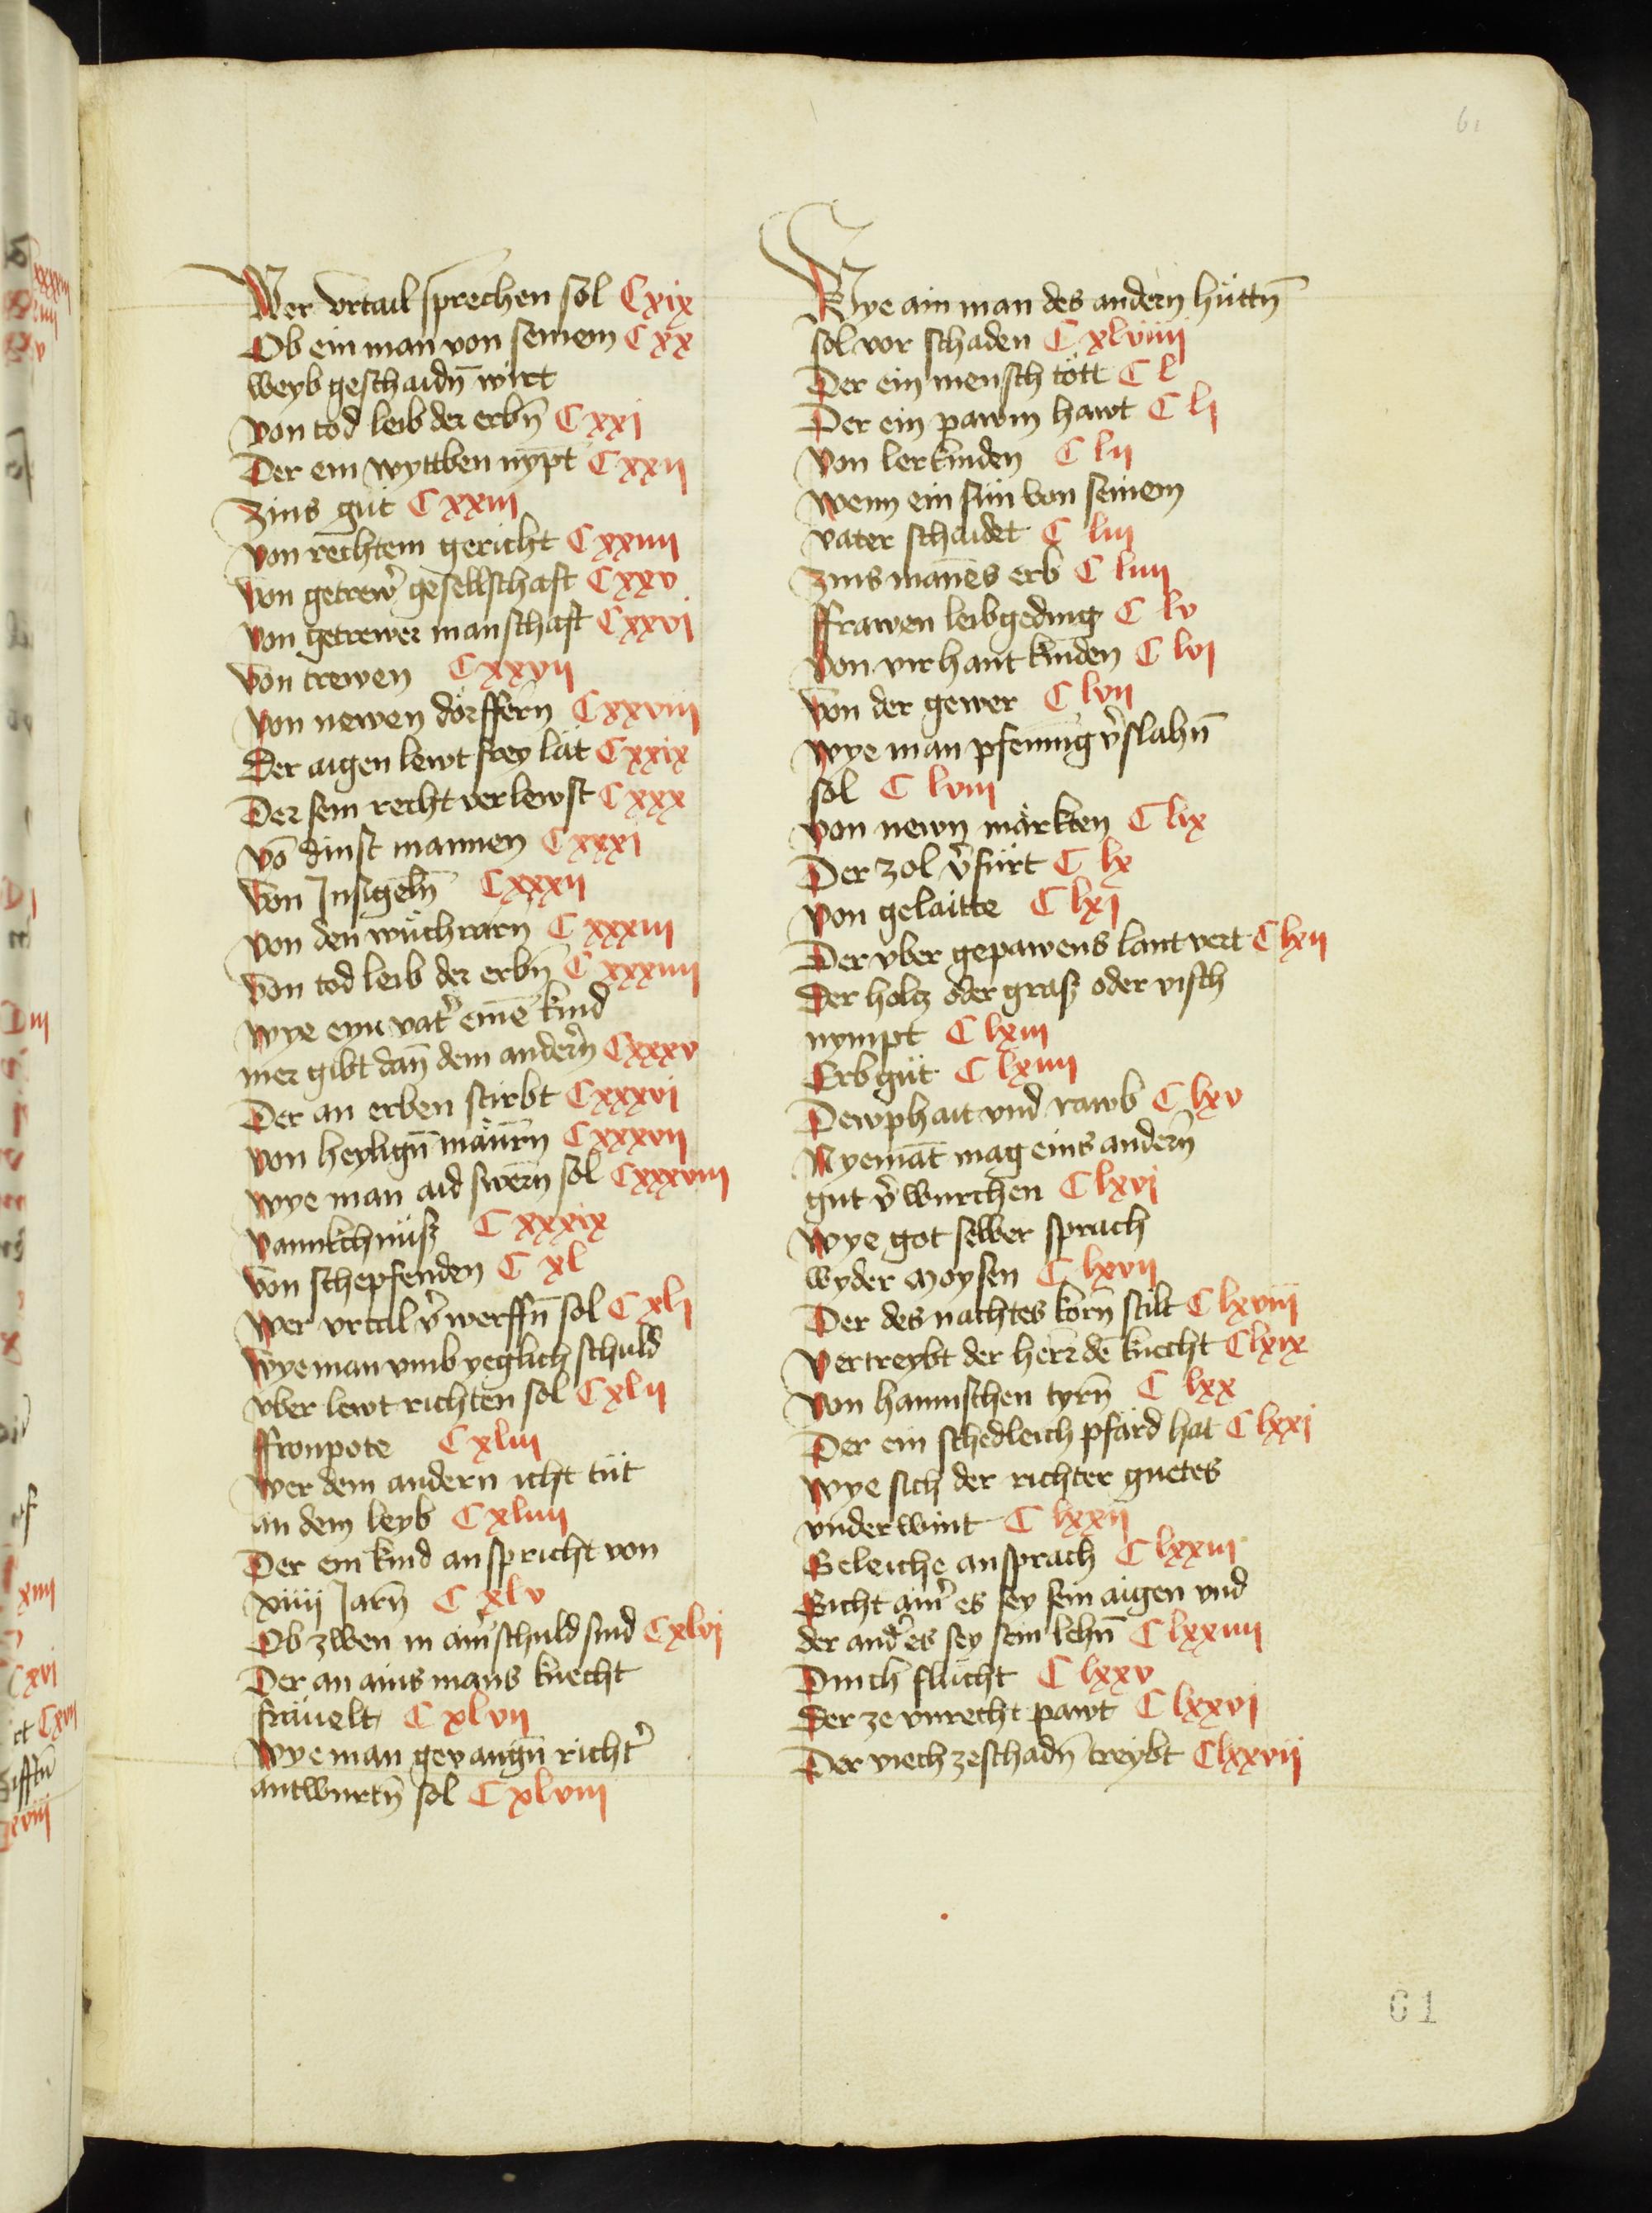 61
Wer vrtail sprechen sol Cxix
Ob ein man von seinem Cxx
weyb geschaidn̄ wirt
Von tod leib der erbn̄ Cxxj
Der ein wyttben nypt Cxxij
Zins gut Cxxiij
Von rechtem gericht Cxxiiij
Von getrew͛ gesellschaft Cxxv
Von getrewer manschaft Cxxvj
Von trewen Cxxvij
Von newen dörffern Cxxviij
Der aigen lewt frey lät Cxxix
Der sein recht verlewst Cxxx
Vō dinst mannen Cxxxj
Von Jnsigeln̄ Cxxxij
Von den wüchrärn Cxxxiij
Von tod leib der erbn̄ Cxxxiiij
Wye eyn vat͛ einē kind
mer gibt dan̄ dem andern̄ Cxxxv
Der an erben stirbt Cxxxvj
Von heylign̄ mäurn̄ Cxxxvij
Wye man aid swern̄ sol Cxxxviij
Vannkchnüsz Cxxxix
Von schepfenden C xl
Wer vrtal v͛werffn̄ sol C xlj
Wye man vmb yeglich schuld
vber lewt richten sol Cxlij
Fronpote Cxliij
Wer dem andern icht tüt
an dem leyb Cxliiij
Der ein kind anspricht von
xiiij Jarn̄ C xlv
Ob zwen in ain͛ schuld sind Cxlvj
Der an ains mans knecht
fräuelt C xlvij
Wye man gevangn̄ richt͛
antwurtn̄ sol C xlviij
Wye ain man des andern hüttn̄
sol vor schaden C xlviiij
Der ein mensch tött C l
Der ein pawm hawt C lj
Von lerkinden C lij
Wenn ein sün von seinem
vater schaidet C liij
Zins manēs erb C liiij
Frawen leibgeding C lv
Von vir hant kinden C lvj
Von der gewer C lvij
Wye man pfenning v͛slahn̄
sol C lviij
Von newn märkten C lix
Der zol v͛fürt C lx
Von gelaitte C lxj
Der vber gepawens lant vert C lxij
Der holtz oder grasz oder visch
nympt C lxiij
Erbgüt C lxiiij
Dewphait vnd rawb C lxv
Nyemāt mag eins andern̄
gut v͛wurchen C lxvj
Wye got selber sprach
wyder Moysen C lxvij
Der des nachtes korn̄ stilt C lxviij
Vertreybt der herr dē knecht Clxix
Von hainischen tyrn̄ C lxx
Der ein schedleich pfärd hat C lxxj
Wye sich der richter guetes
vnderwint C lxxij
Geleiche ansprach C lxxiij
Gicht ain͛ es sey sein aigen vnd
der and͛ es sey sein lehn̄ C lxxiiij
Durch flücht C lxxv
Der ze vnrecht pawt C lxxvj
Der viech ze schadn̄ treybt Clxxvij
61